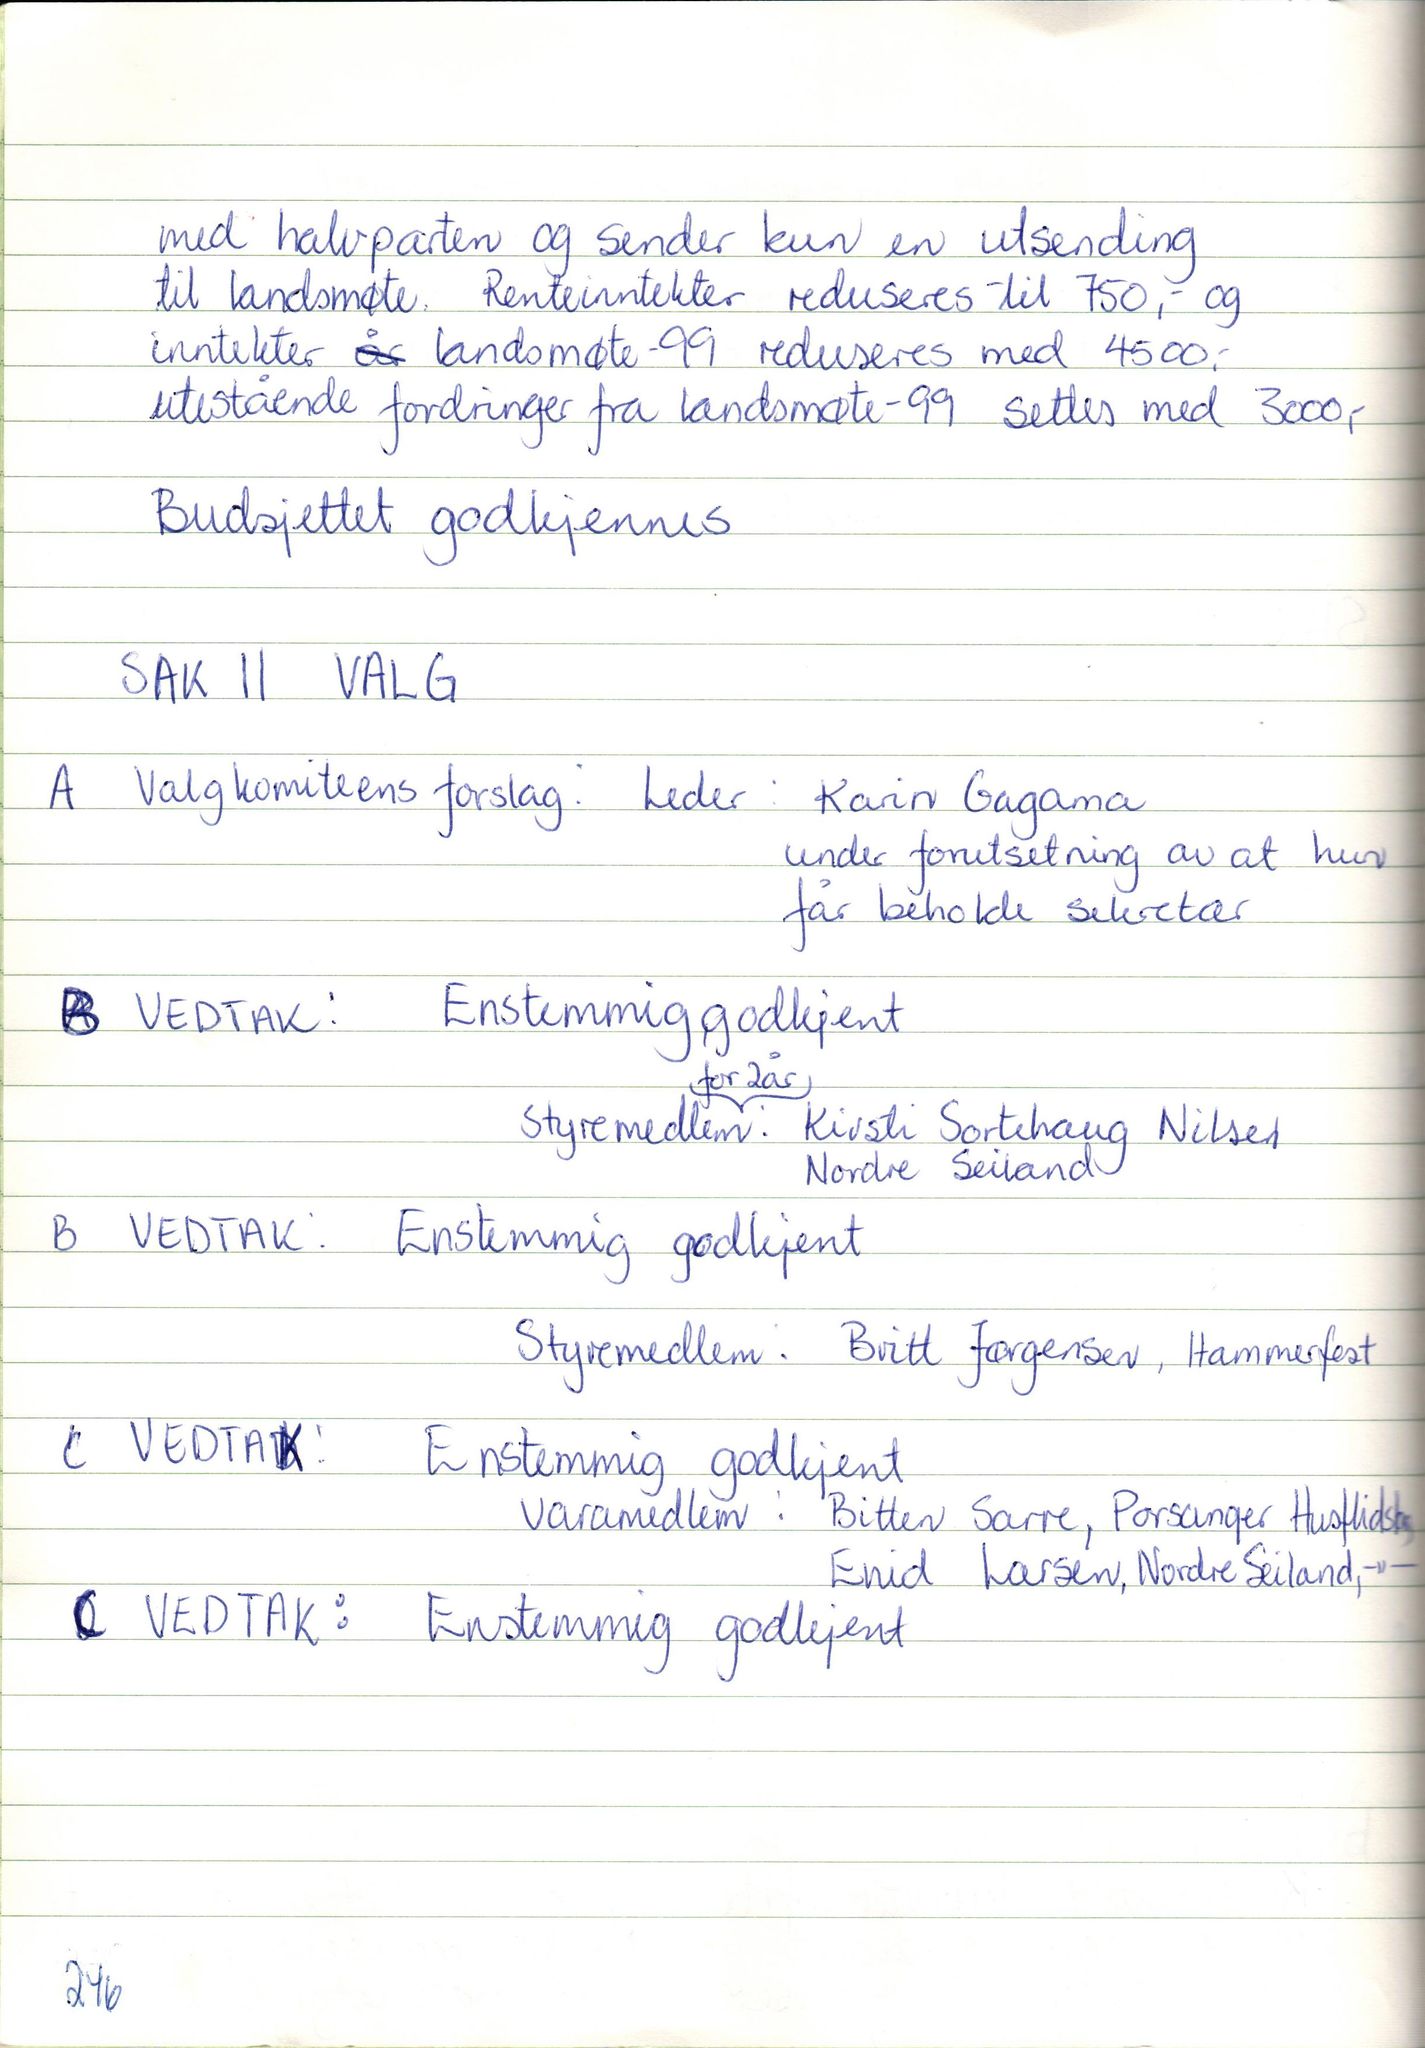 med halvparten og sender kun en utsending
til landsmøte. Renteinntekter reduseres til 750,- og
inntekter år landsmøte-99 reduseres med 4500,-
utestående fordringer fra landsmøte-99 settes med 3000,-
Budsjettet godkjennes
SAK 11 VALG
A Valgkomiteens forslag: Leder: Karin Gagama
under forutsetning av at hun
får beholde sekretær
B VEDTAK: Enstemmig godkjent
for 2 år
Styremedlem: Kirsti Sortehaug Nilsen
Nordre Seiland
B VEDTAK: Enstemmig godkjent
Styremedlem: Britt Jørgensen, Hammerfest
C VEDTAK: Enstemmig godkjent
Varamedlem: Bitten Sarre, Porsanger
Enid Larsen, Nordre Seiland, -"-
C VEDTAK: Enstemmig godkjent
246